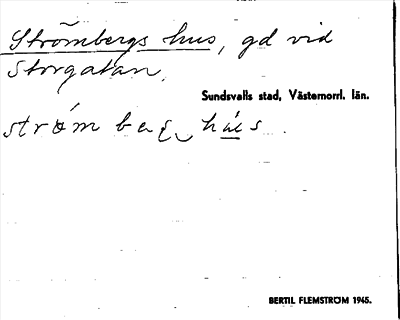 Strömbergs hus, gd vid
Storgatan.
Sundsvalls stad, Västernorrl. län.
BERTIL FLEMSTRÖM 1945.